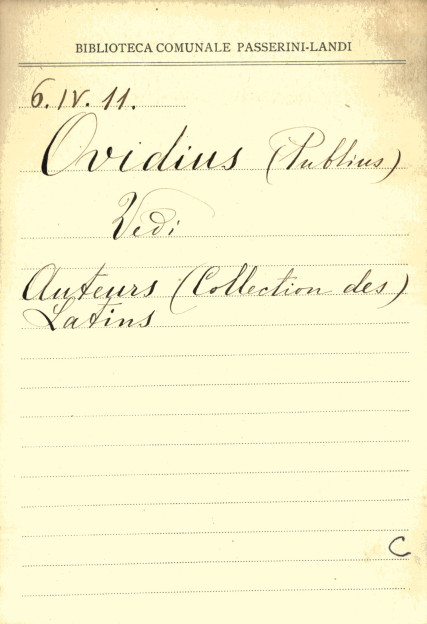 BIBLIOTECA COMUNALE PASSERINI-LANDI
6.IV.11.
Ovidius (Publius)
Vedi
Auteurs (Collection des)
Latins
C